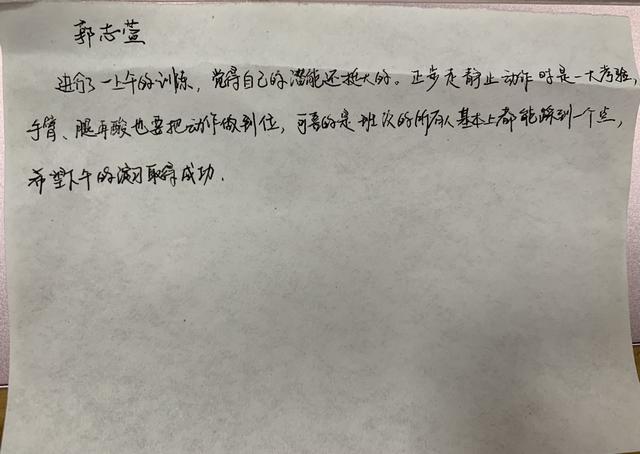 郭志萱
进行了一上午的训练，觉得自己的潜能还挺大的。正步走静止动作时是一大考验，
手臂、腿再酸也要把动作做到位，可喜的是班次的所有人基本上都能踩到一个点，
希望下午的演习取得成功.